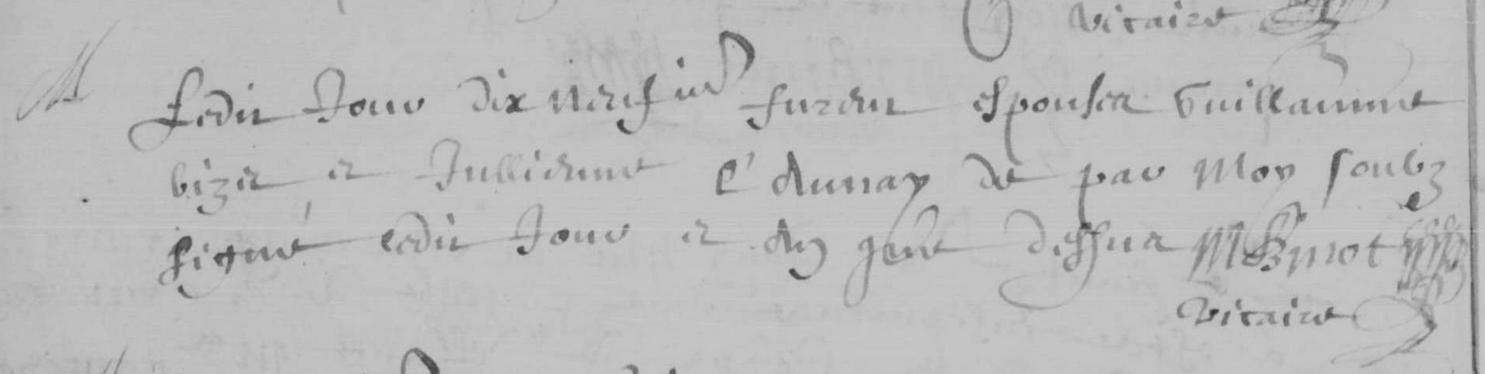 vicaire
M
Ledit Jour dix neufie furent espouser Guillaume
bizet et Jullienne l'Aunay de par Moy soubz
signé ledit Jour et an que dessus
vicaire